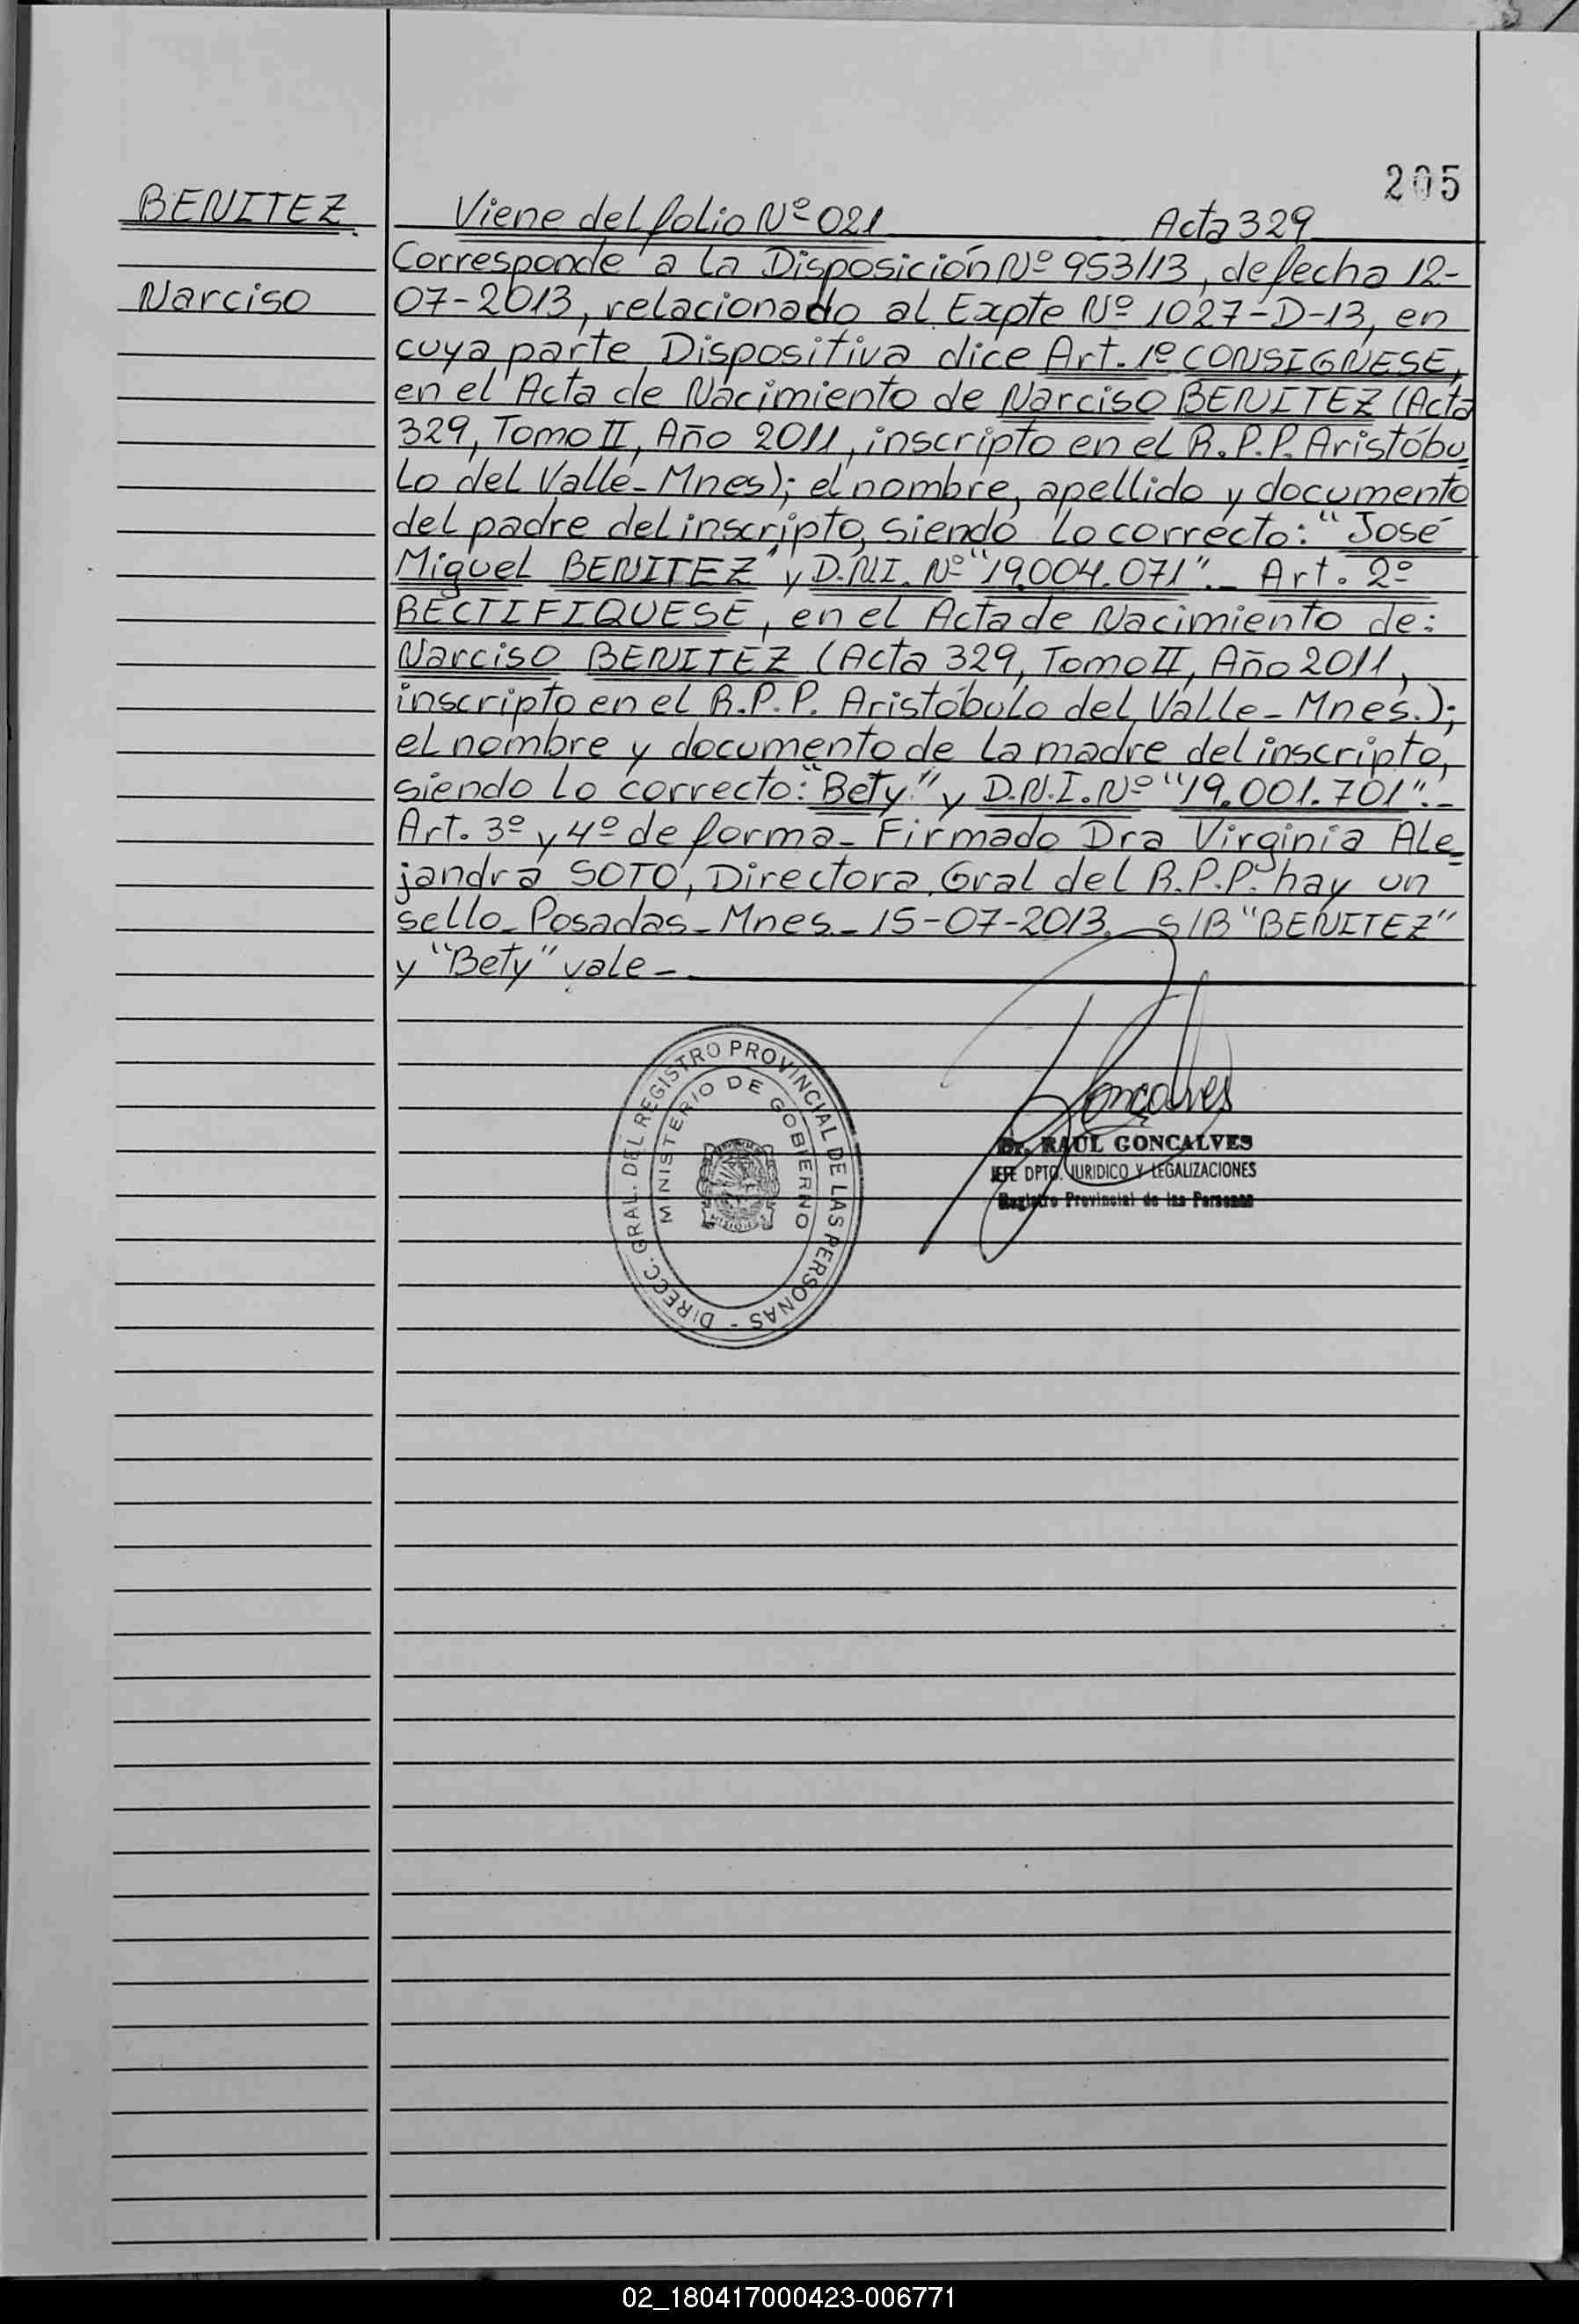 205
BENITEZ
Narciso
Viene del folio Nº 021 Acta 329
Corresponde a la Disposición Nº 953/13, de fecha 12-
07-2013, relacionado al Expte Nº 1027-D-13, en
cuya parte Dispositiva dice Art. 1º CONSIGNESE,
en el Acta de Nacimiento de Narciso BENITEZ (Acta
329, Tomo II, Año 2011, inscripto en el R.P.P. Aristóbu
lo del Valle-Mnes); el nombre, apellido y documento
del padre del inscripto, siendo lo correcto: "José
Miguel BENITEZ" y D.N.I. Nº "19.004.071".- Art. 2º
RECTIFIQUESE, en el Acta de Nacimiento de:
Narciso BENITEZ (Acta 329, Tomo II, Año 2011,
inscripto en el R.P.P. Aristóbulo del Valle-Mnes.);
el nombre y documento de la madre del inscripto,
siendo lo correcto: "Bety" y D.N.I. Nº "19.001.701".-
Art. 3º y 4º de forma- Firmado Dra Virginia Ale
jandra SOTO, Directora Gral del R.P.P. hay un
sello-Posadas-Mnes-15-07-2013. S/B "BENITEZ"
y "Bety" vale-.
DIRECC. GRAL. DEL REGISTRO PROVINCIAL DE LAS PERSONAS -
MINISTERIO DE GOBIERNO
Goncalves
Dr. RAUL GONCALVES
JEFE DPTO. JURIDICO Y LEGALIZACIONES
Registro Provincial de las Personas
02_180417000423-006771